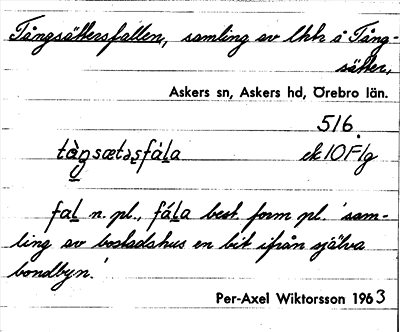 Tångsättersfallen, samling av lhk å Tång-
sätter,
Askers sn, Askers hd, Örebro län.
516.
tàŋsætəsfála ek10F1g
fal n. pl., fála best. form pl. 'sam-
ling av bostadshus en bit ifrån själva
bondbyn.'
Per-Axel Wiktorsson 1963